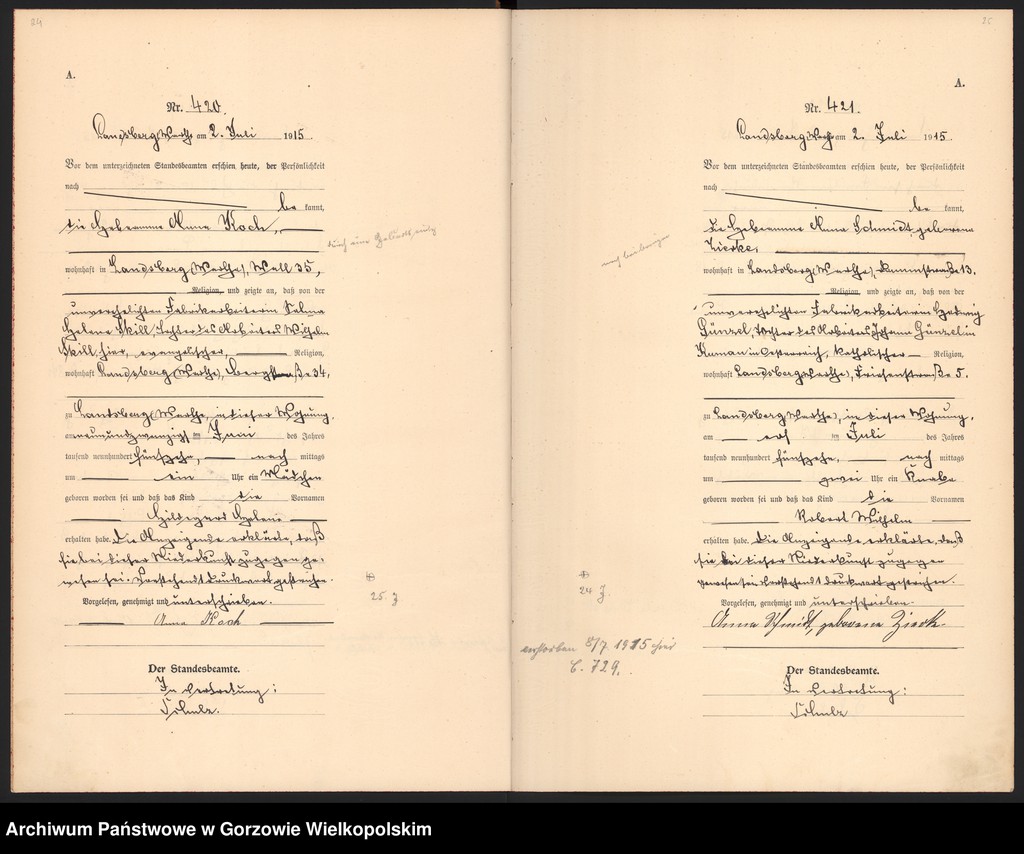 24
A.
Nr. 420.
Landsberg (Warthe) am 2. Juli 1915.
Vor dem unterzeichneten Standesbeamten erschien heute, der Persönlichkeit
nach
be kannt,
die Hebamme Anna Koch,
wohnhaft in Landsberg (Warthe), Wall 35,
Religion, und zeigte an, daß von der
unverehelichten Fabrikarbeiterin Selma
Helene Skill, Tochter des Arbeiters Wilhelm
Skill, hier, evangelischer, Religion,
wohnhaft Landsberg (Warthe), Bergstraße 34,
zu Landsberg (Warthe), in dieser Wohnung,
am neunundzwanzigsten Juni des Jahres
tausend neunhundert fünfzehn, nach mittags
um ein Uhr ein Mädchen
geboren worden sei und daß das Kind die Vornamen
Hildegard Helene
erhalten habe. Die Anzeigende erklärte, daß
sie bei dieser Niederkunft zugegen ge-
wesen sei. Vorstehend 1 Druckwort gestrichen.
Vorgelesen, genehmigt und unterschrieben.
Anna Koch
Der Standesbeamte.
In Vertretung:
Schulz.
25. J
25
A.
Nr. 421.
Landsberg (Warthe) am 2. Juli 1915.
Vor dem unterzeichneten Standesbeamten erschien heute, der Persönlichkeit
nach
be kannt,
die Hebamme Anna Schmidt, geborene
Zierke,
wohnhaft in Landsberg (Warthe), Dammstraße 13.
Religion, und zeigte an, daß von der
unverehelichten Fabrikarbeiterin Hedwig
Günzel, Tochter des Arbeiters Johann Günzel in
in Österreich, katholischer Religion,
wohnhaft Landsberg (Warthe), Friesenstraße 5.
zu Landsberg (Warthe), in dieser Wohnung,
am Juli des Jahres
tausend neunhundert fünfzehn, nach mittags
um zwei Uhr ein Knabe
geboren worden sei und daß das Kind die Vornamen
Robert Wilhelm
erhalten habe. Die Anzeigende erklärte, daß
sie bei dieser Niederkunft zugegen
gewesen sei. Vorstehend 1 Druckwort gestrichen.
Vorgelesen, genehmigt und unterschrieben.
Anna Schmidt, geborene Zierke
Der Standesbeamte.
In Vertretung:
Schulz
24 J.
verstorben 8/7 1915 hier
C. 729.
Archiwum Państwowe w Gorzowie Wielkopolskim